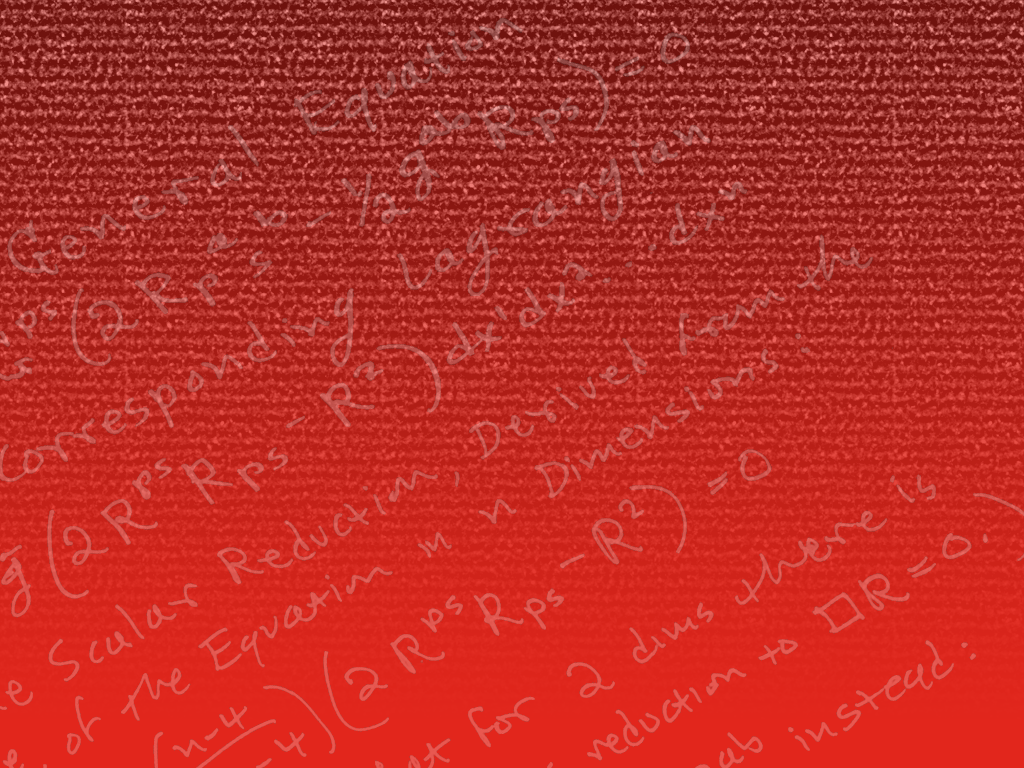 General Equation
(2 Rps ab - 1/2 g ab Rps) = 0
Corresponding Lagrangian
(2 Rps Rps - R²) dx¹dx² ... dxn
Scalar Reduction, Derived from the
of the Equation in n Dimensions:
n-4 (2 Rps Rps - R²) = 0
for 2 dims there is
reduction to □R = 0.)
ab instead: